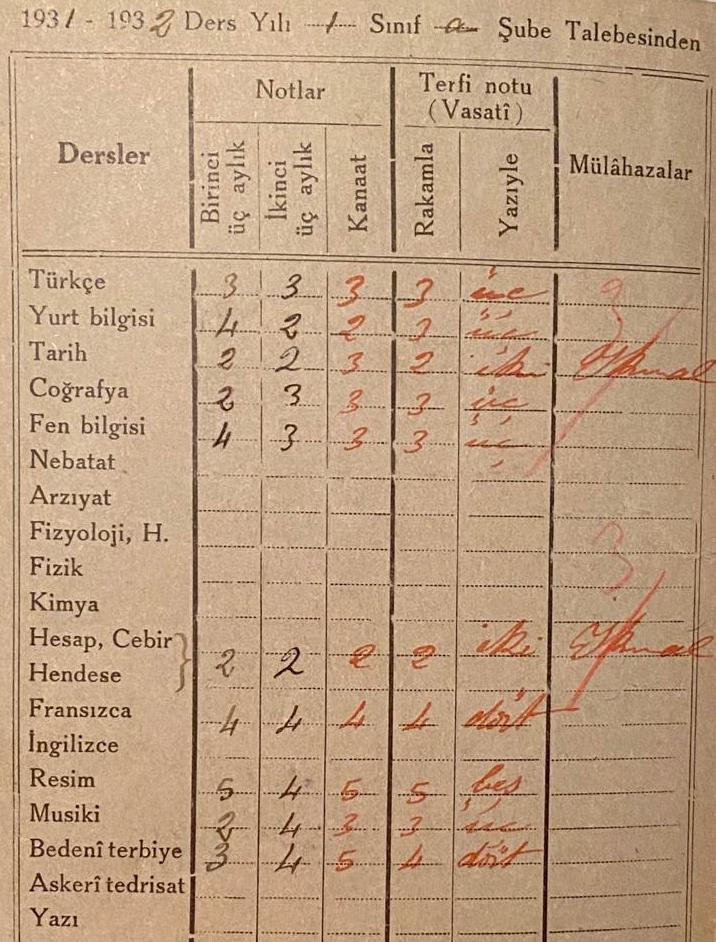 1931 - 1932 Ders Yılı 1 Sınıf a Şube Talebesinden
Dersler Notlar Terfi notu (Vasatî) Mülâhazalar
Birinci üç aylık İkinci üç aylık Kanaat Rakamla Yazıyle
Türkçe 3 3 3 3 üç 3
Yurt bilgisi 4 2 2 3 üç
Tarih 2 2 3 2 iki İkmal
Coğrafya 2 3 3 3 üç
Fen bilgisi 4 3 3 3 üç
Nebatat
Arzıyat
Fizyoloji, H. 3
Fizik
Kimya
Hesap, Cebir iki İkmal
Hendese 2 2 2 2
Fransızca 4 4 4 4 dört
İngilizce
Resim 5 4 5 5 beş
Musiki 2 4 3 3 üç
Bedenî terbiye 3 4 5 4 dört
Askerî tedrisat
Yazı